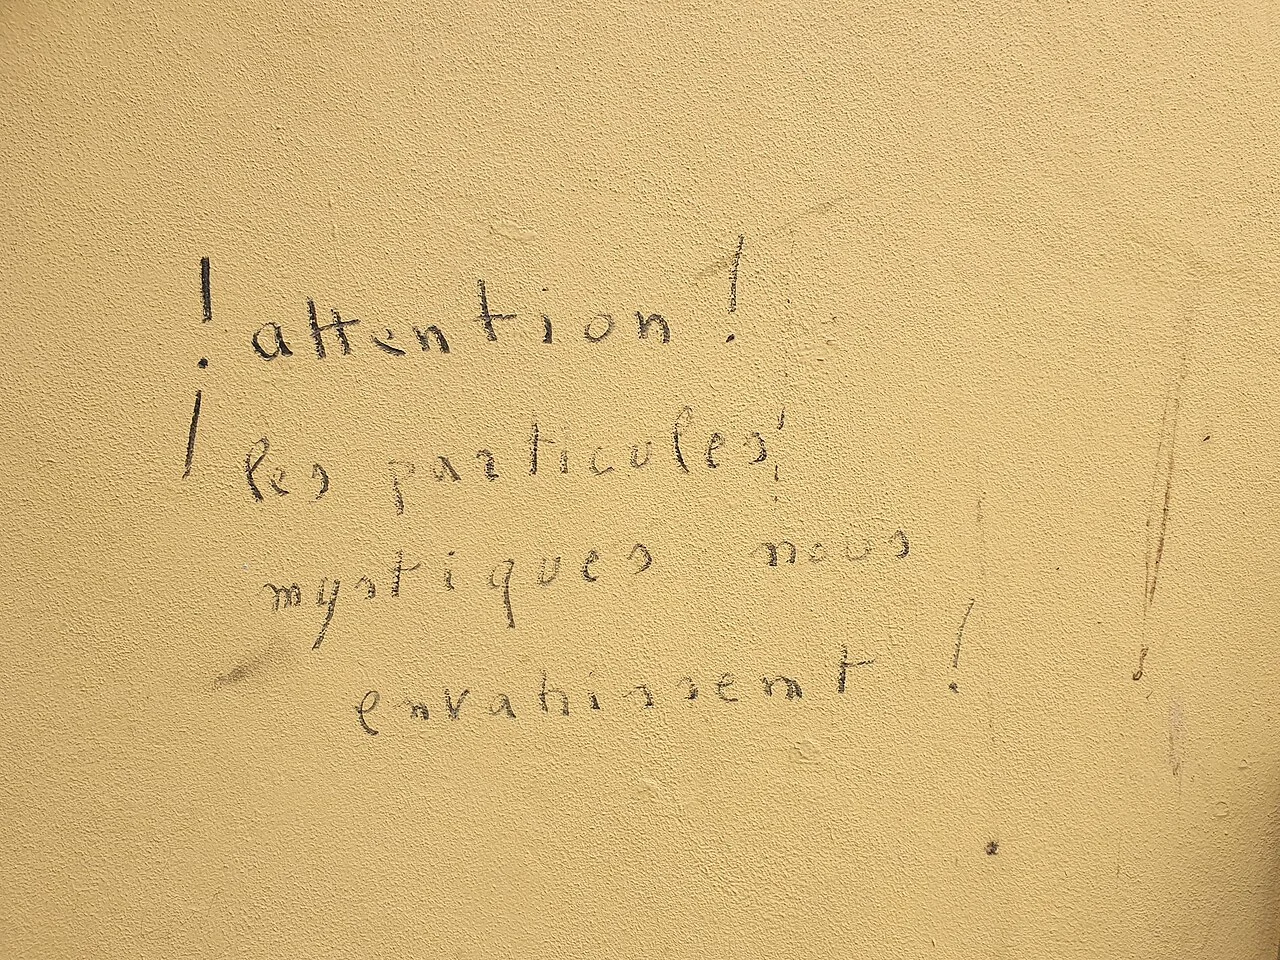 ! attention !
! les particules!
mystiques nous
envahissent !